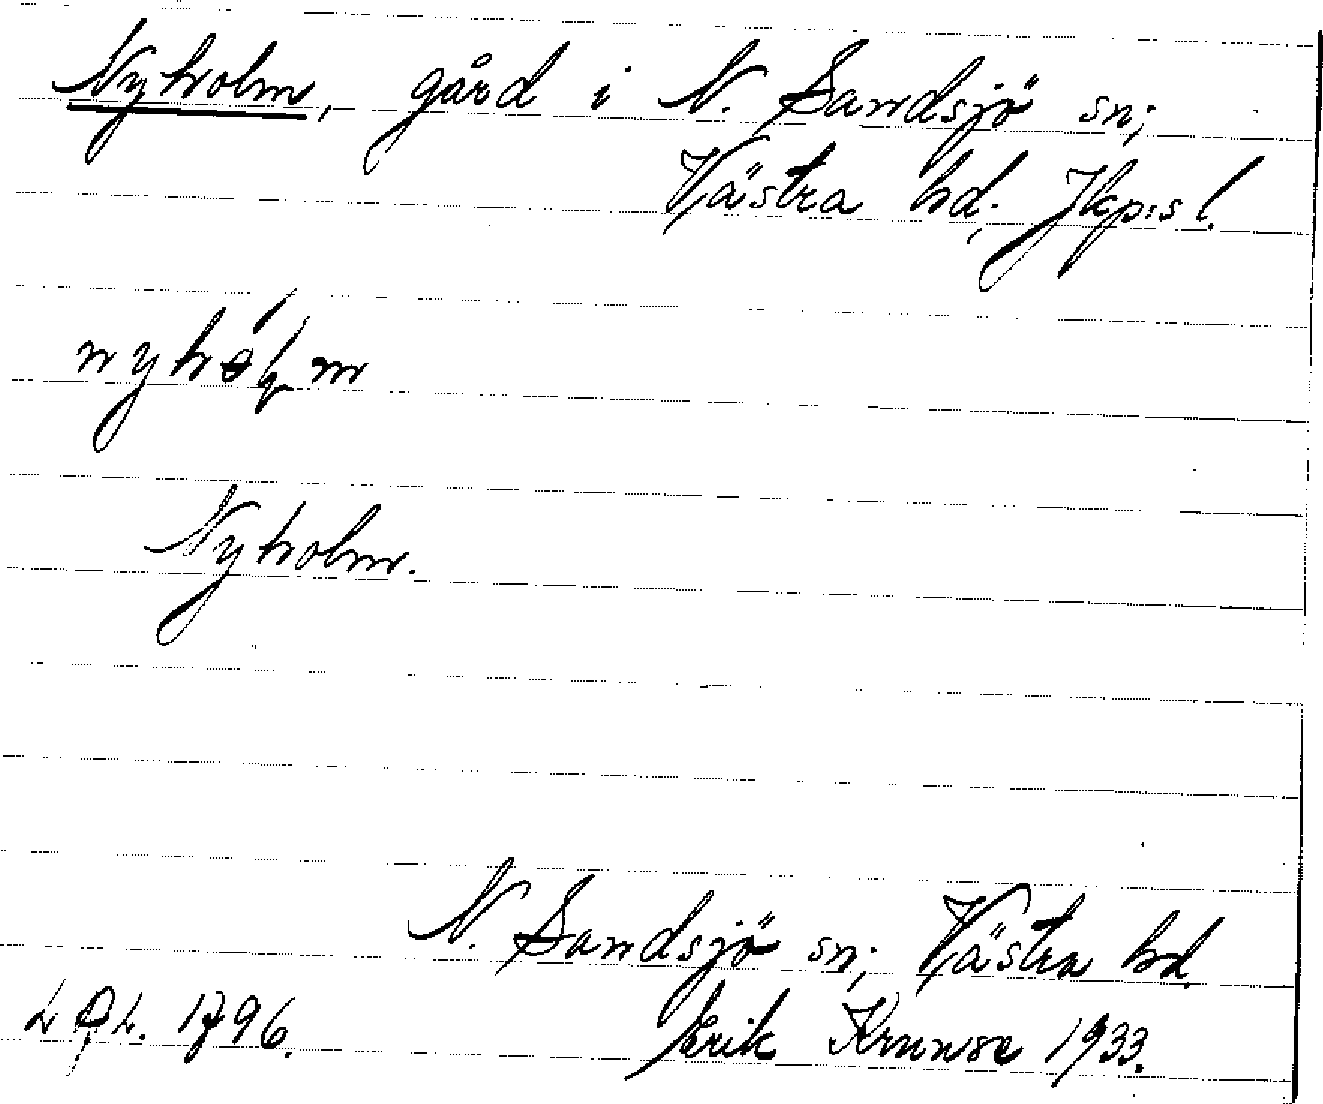 Nyholm, gård i N. Sandsjö sn;
Västra hd, Jkp:s l.
Nyholm.
N. Sandsjö sn; Västra hd.
1796. Erik Krunse 1933.